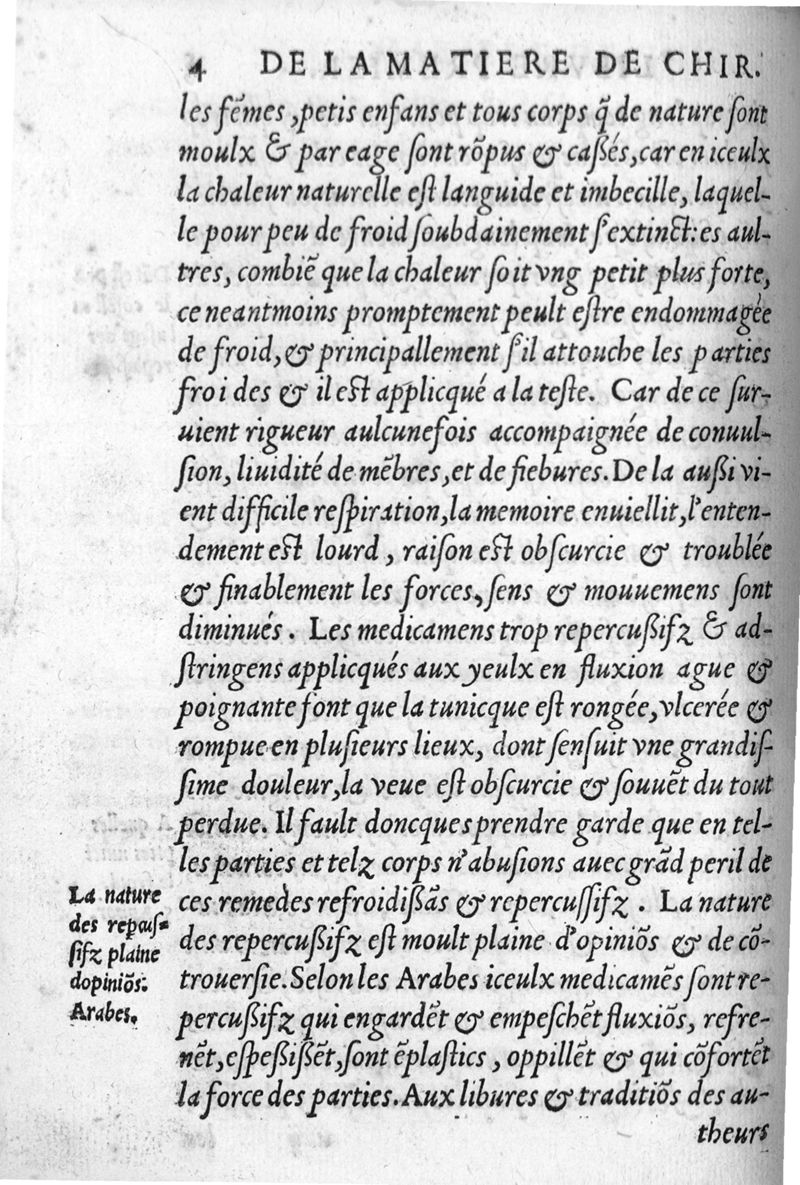 4 DE LA MATIERE DE CHIR.
les fẽmes, petis enfans et tous corps q̃ de nature ſont
moulx & par eage ſont rõpus & caßés, car en iceulx
la chaleur naturelle eſt languide et imbecille, laquel-
le pour peu de froid ſoubdainement ſ'extinct: es aul-
tres, combiẽ que la chaleur ſoit vng petit plus forte,
ce neantmoins promptement peult eſtre endommagée
de froid, & principallement ſ'il attouche les parties
froides & il eſt applicqué a la teſte. Car de ce ſur-
uient rigueur aulcunefois accompaignée de conuul-
ſion, liuidité de mẽbres, et de fiebures. De la außi vi-
ent difficile reſpiration, la memoire enuiellit, l'enten-
dement eſt lourd, raiſon eſt obſcurcie & troublée
& finablement les forces, ſens & mouuemens ſont
diminués. Les medicamens trop repercußifz & ad-
ſtringens applicqués aux yeulx en fluxion ague &
poignante font que la tunicque eſt rongée, vlcerée &
rompue en pluſieurs lieux, dont ſenſuit vne grandiſ-
ſime douleur, la veue eſt obſcurcie & ſouuẽt du tout
perdue. Il fault doncques prendre garde que en tel-
les parties et telz corps n'abuſions auec grãd peril de
ces remedes refroidißãs & repercuſſifz. La nature
des repercußifz eſt moult plaine d'opiniõs & de cõ-
trouerſie. Selon les Arabes iceulx medicamẽs ſont re-
percußifz qui engardẽt & empeſchẽt fluxiõs, refre-
nẽt, eſpeßißẽt, ſont ẽplaſtics, oppillẽt & qui cõfortẽt
la force des parties. Aux libures & traditiõs des au-
theurs
La nature
des repcuſ-
ſifz plaine
dopiniõs.
Arabes.